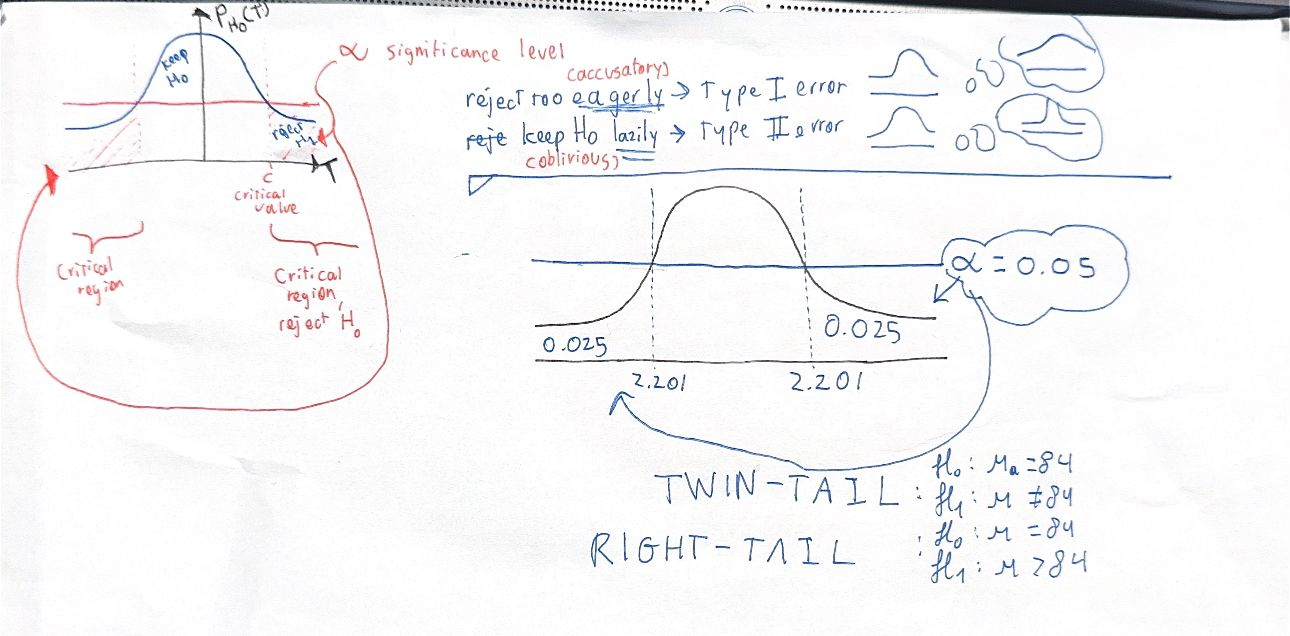 P_H₀(T)
keep H₀
reject H₀
T
c
critical value
Critical region
Critical region, reject H₀
α significance level
(accusatory)
reject too eagerly → Type I error
reje keep H₀ lazily → Type II error
(oblivious)
α = 0.05
0.025
0.025
2.201
2.201
TWIN-TAIL : H₀ : μₐ = 84
H₁ : μ ≠ 84
RIGHT-TAIL : H₀ : μ = 84
H₁ : μ > 84